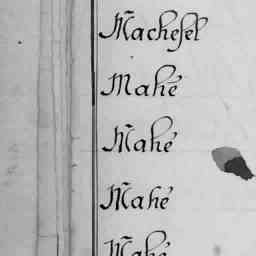 Machefel
Mahé
Mahé
Mahé
Mahé